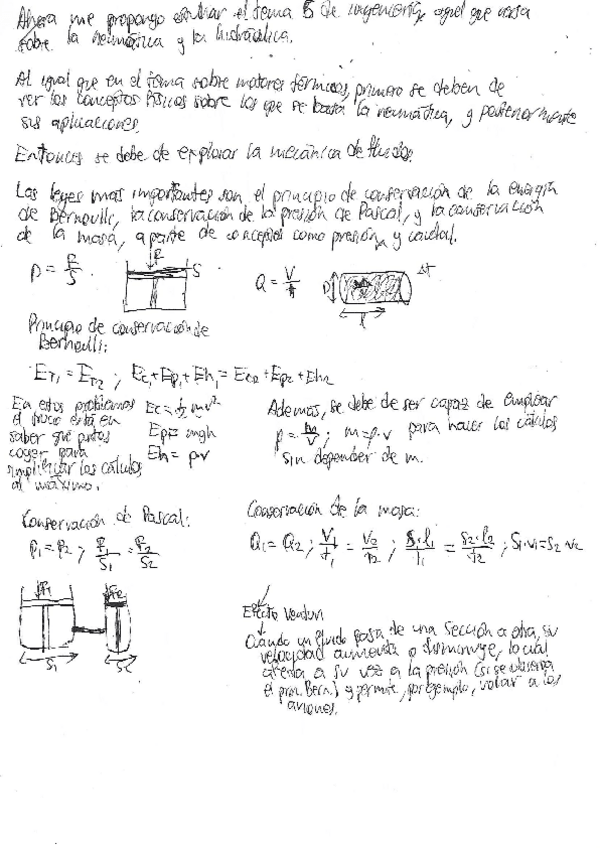 Ahora me propongo estudiar el tema 5 de ingeniería, aquel que versa
sobre la neumática y la hidráulica.
Al igual que en el tema sobre motores térmicos, primero se deben de
ver los conceptos físicos sobre los que se basa la neumática, y posteriormente
sus aplicaciones.
Entonces se debe de explorar la mecánica de fluidos
Las leyes mas importantes son el principio de conservación de la energía
de Bernoulli, la conservación de la presión de Pascal, y la conservación
de la masa, a parte de conceptos como presión y caudal.
P = F/S
F
S
Q = V/t
D
l
Δt
Principio de conservación de
Bernoulli:
ET1 = ET2 ; Ec1 + Ep1 + Eh1 = Ec2 + Ep2 + Eh2
En estos problemas
el truco está en
saber que puntos
coger para
simplificar los cálculos
al máximo.
Ec = 1/2 mv²
Ep = mgh
Eh = p·v
Además, se debe de ser capaz de emplear
ρ = m/V ; m = ρ·v para hacer los cálculos
sin depender de m.
Conservación de Pascal:
P1 = P2 ; F1/S1 = F2/S2
F1
F2
S1
S2
Conservación de la masa:
Q1 = Q2 ; V1/t1 = V2/t2 ; S1·l1/t1 = S2·l2/t2 ; S1·v1 = S2·v2
Efecto Venturi
Cuando un fluido pasa de una sección a otra, su
velocidad aumenta o disminuye, lo cual
afecta a su vez a la presión (si se observa
el prin. Bern.) y permite, por ejemplo, volar a los
aviones.